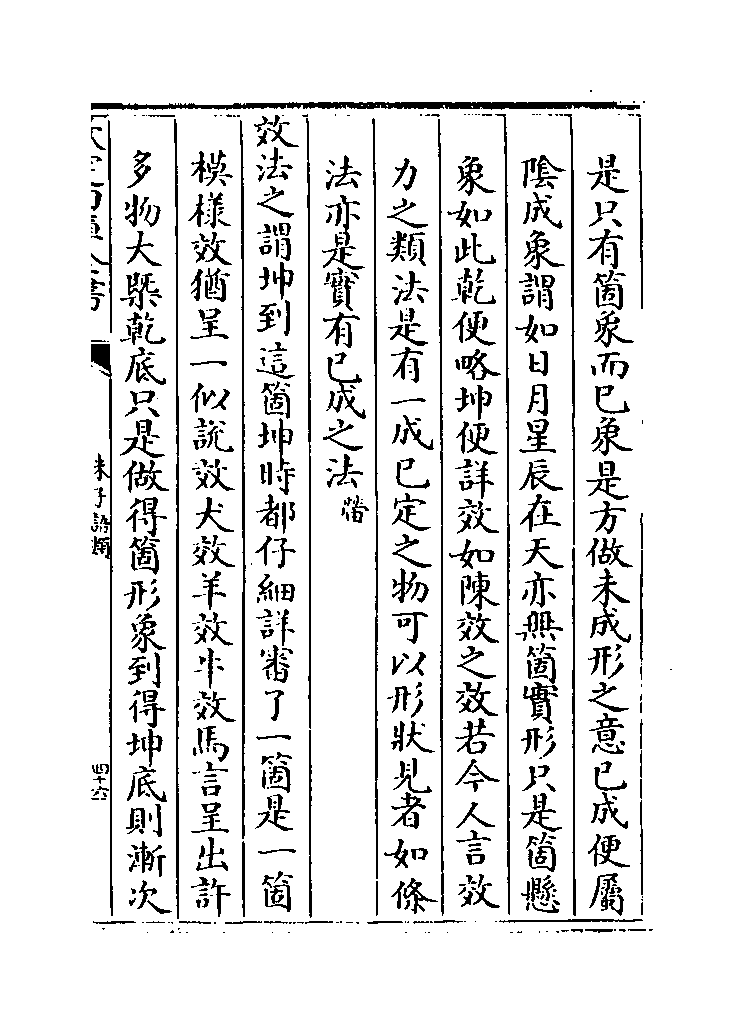 是只有箇象而已象是方做未成形之意已成便屬
陰成象謂如日月星辰在天亦無箇實形只是箇懸
象如此乾便略坤便詳效如陳效之效若今人言效
力之類法是有一成已定之物可以形狀見者如條
法亦是實有已成之法㽦
效法之謂坤到這箇坤時都仔細詳審了一箇是一箇
模樣效猶呈一似說效犬效羊效牛效馬言呈出許
多物大槩乾底只是做得箇形象到得坤底則漸次
朱子語類
四十六